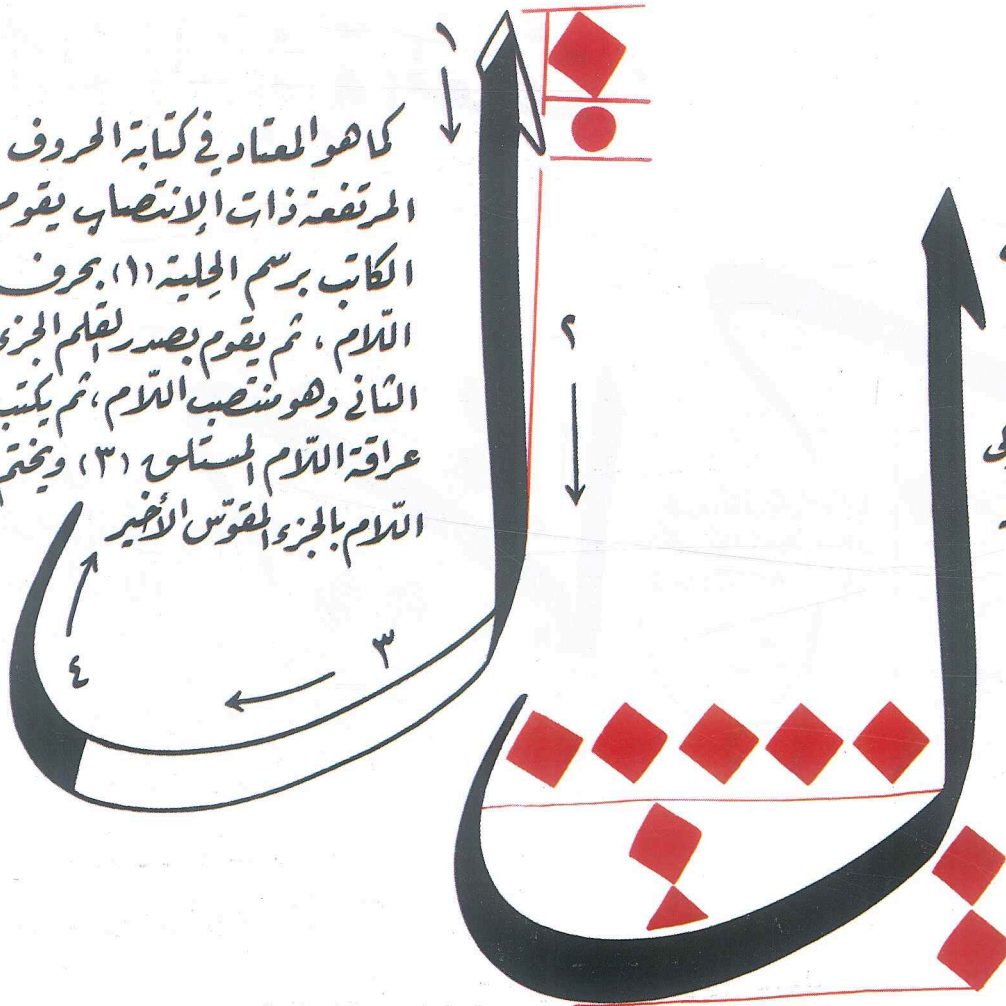 كما هو المعتاد في كتابة الحروف
المرتفعة ذات الإنتصاب يقوم
الكاتب برسم الحِلية (١) بحرف
اللّام ، ثم يقوم بصدر القلم الجزء
الثاني وهو منتصب اللّام ، ثم يكتب
عراقة اللّام المستلق (٣) ويختم
اللّام بالجزء المقوّس الأخير
١
٢
٣
٤
ل
ل